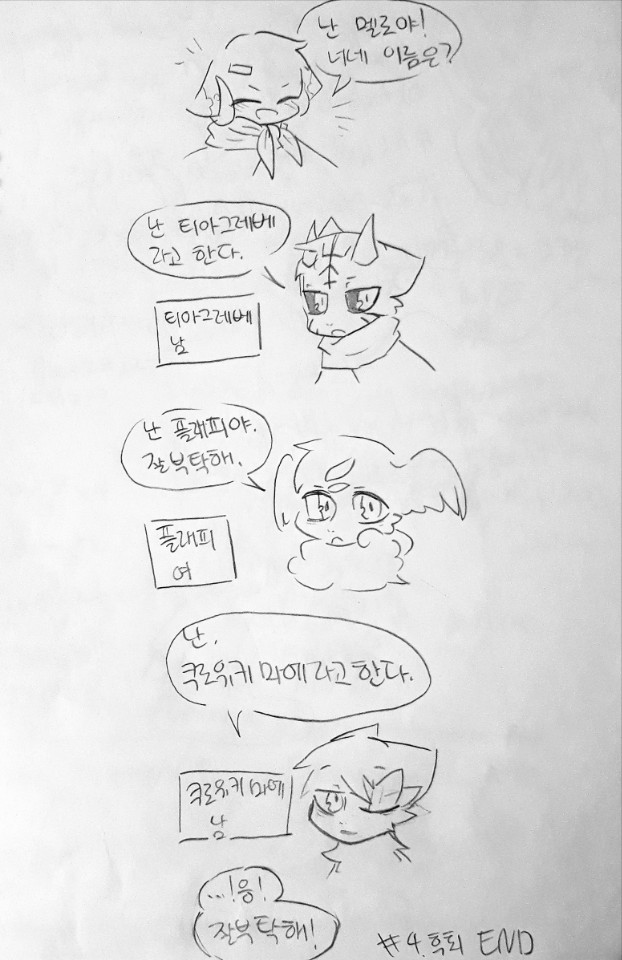 난 멜로야!
너네 이름은?
난 티아그레베
라고 한다.
티아그레베
남
난 플래피야.
잘부탁해.
플래피
여
난.
쿠로유키 마에라고한다.
쿠로유키 마에
남
...!응!
잘부탁해!
#4.흑퇴 END